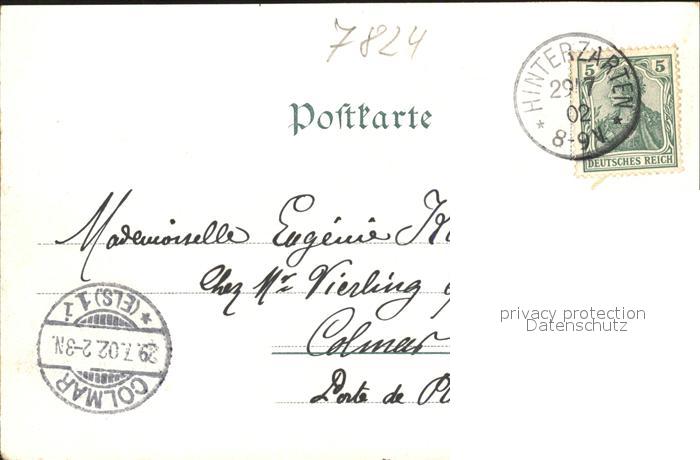 7824
Postkarte
HINTERZARTEN
29 7
02
8-9N
* *
5 5
DEUTSCHES REICH
Mademoiselle Eugénie
Chez Mr Vierling
Colmar
Porte de
privacy protection
Datenschutz
COLMAR
29.7.02.2-3N
* (ELS) 1